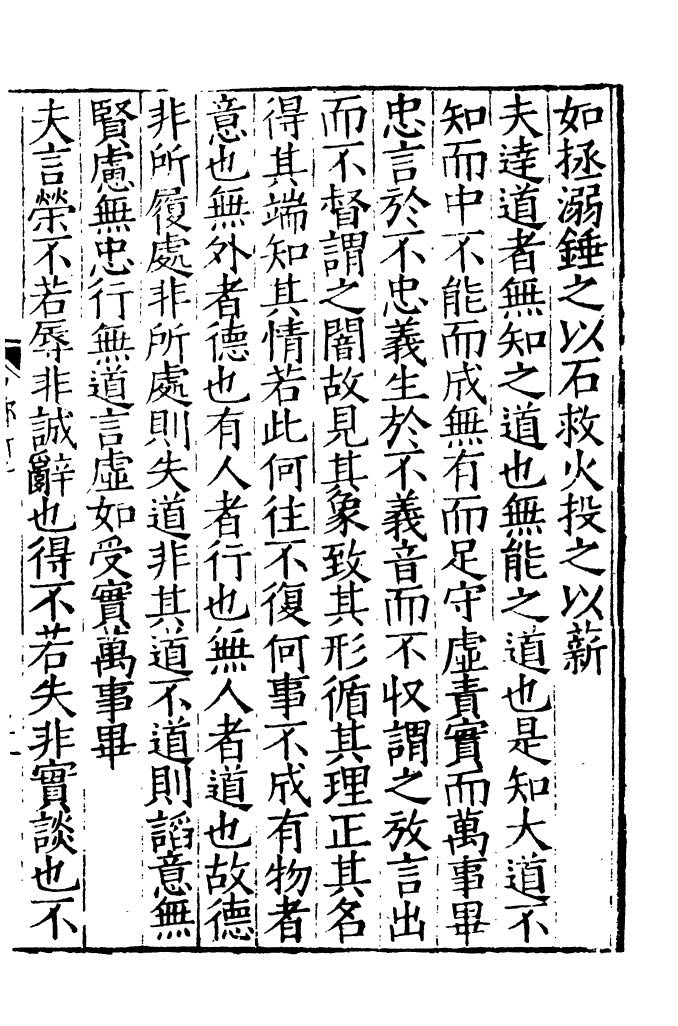 如拯溺錘之以石救火投之以薪
夫逹道者無知之道也無能之道也是知大道不
知而中不能而成無有而足守虛責實而萬事畢
忠言於不忠義生於不義音而不収謂之放言出
而不督謂之闇故見其象致其形循其理正其名
得其端知其情若此何往不復何事不成有物者
意也無外者德也有人者行也無人者道也故德
非所履處非所處則失道非其道不道則謟意無
賢慮無忠行無道言虛如受實萬事畢
夫言榮不若辱非誠辭也得不若失非實談也不